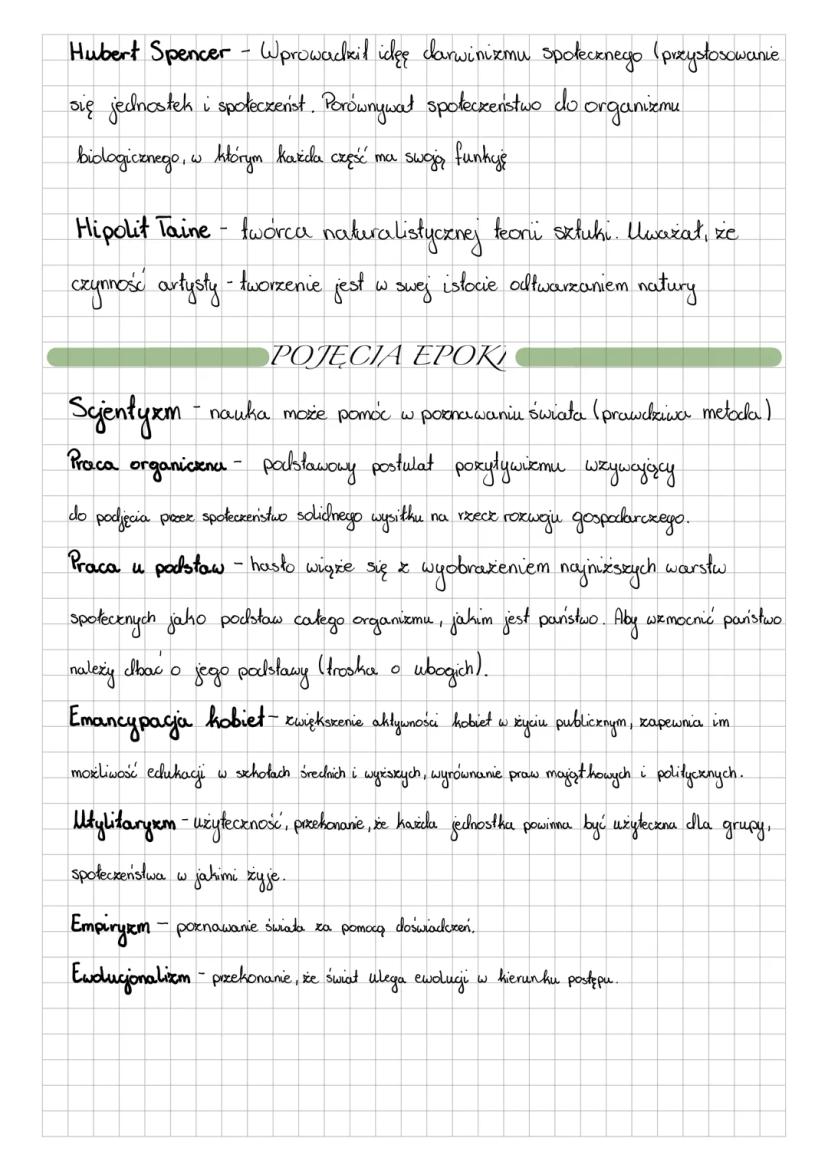 Hubert Spencer - Wprowadził ideę darwinizmu społecznego (przystosowanie
się jednostek i społeczeńst. Porównywał społeczeństwo do organizmu
biologicznego, w którym każda część ma swoją funkję
Hipolit Taine - twórca naturalistycznej teorii sztuki. Uważał, że
czynność artysty - tworzenie jest w swej istocie odtwarzaniem natury
POJĘCIA EPOKI
Scjentyzm - nauka może pomóc w poznawaniu świata (prawdziwa metoda)
Praca organiczna - podstawowy postulat pozytywizmu wzywający
do podjęcia przez społeczeństwo solidnego wysiłku na rzecz rozwoju gospodarczego.
Praca u podstaw - hasło wiąże się z wyobrażeniem najniższych warstw
społecznych jako podstaw całego organizmu, jakim jest państwo. Aby wzmocnić państwo
należy dbać o jego podstawy (troska o ubogich).
Emancypacja kobiet - zwiększenie aktywności kobiet w życiu publicznym, zapewnia im
możliwość edukacji w szkołach średnich i wyższych, wyrównanie praw majątkowych i politycznych.
Utylitaryzm - użyteczność, przekonanie, że każda jednostka powinna być użyteczna dla grupy,
społeczeństwa w jakimi żyje.
Empiryzm - poznawanie świata za pomocą doświadczeń.
Ewolucjonalizm - przekonanie, że świat ulega ewolucji w kierunku postępu.